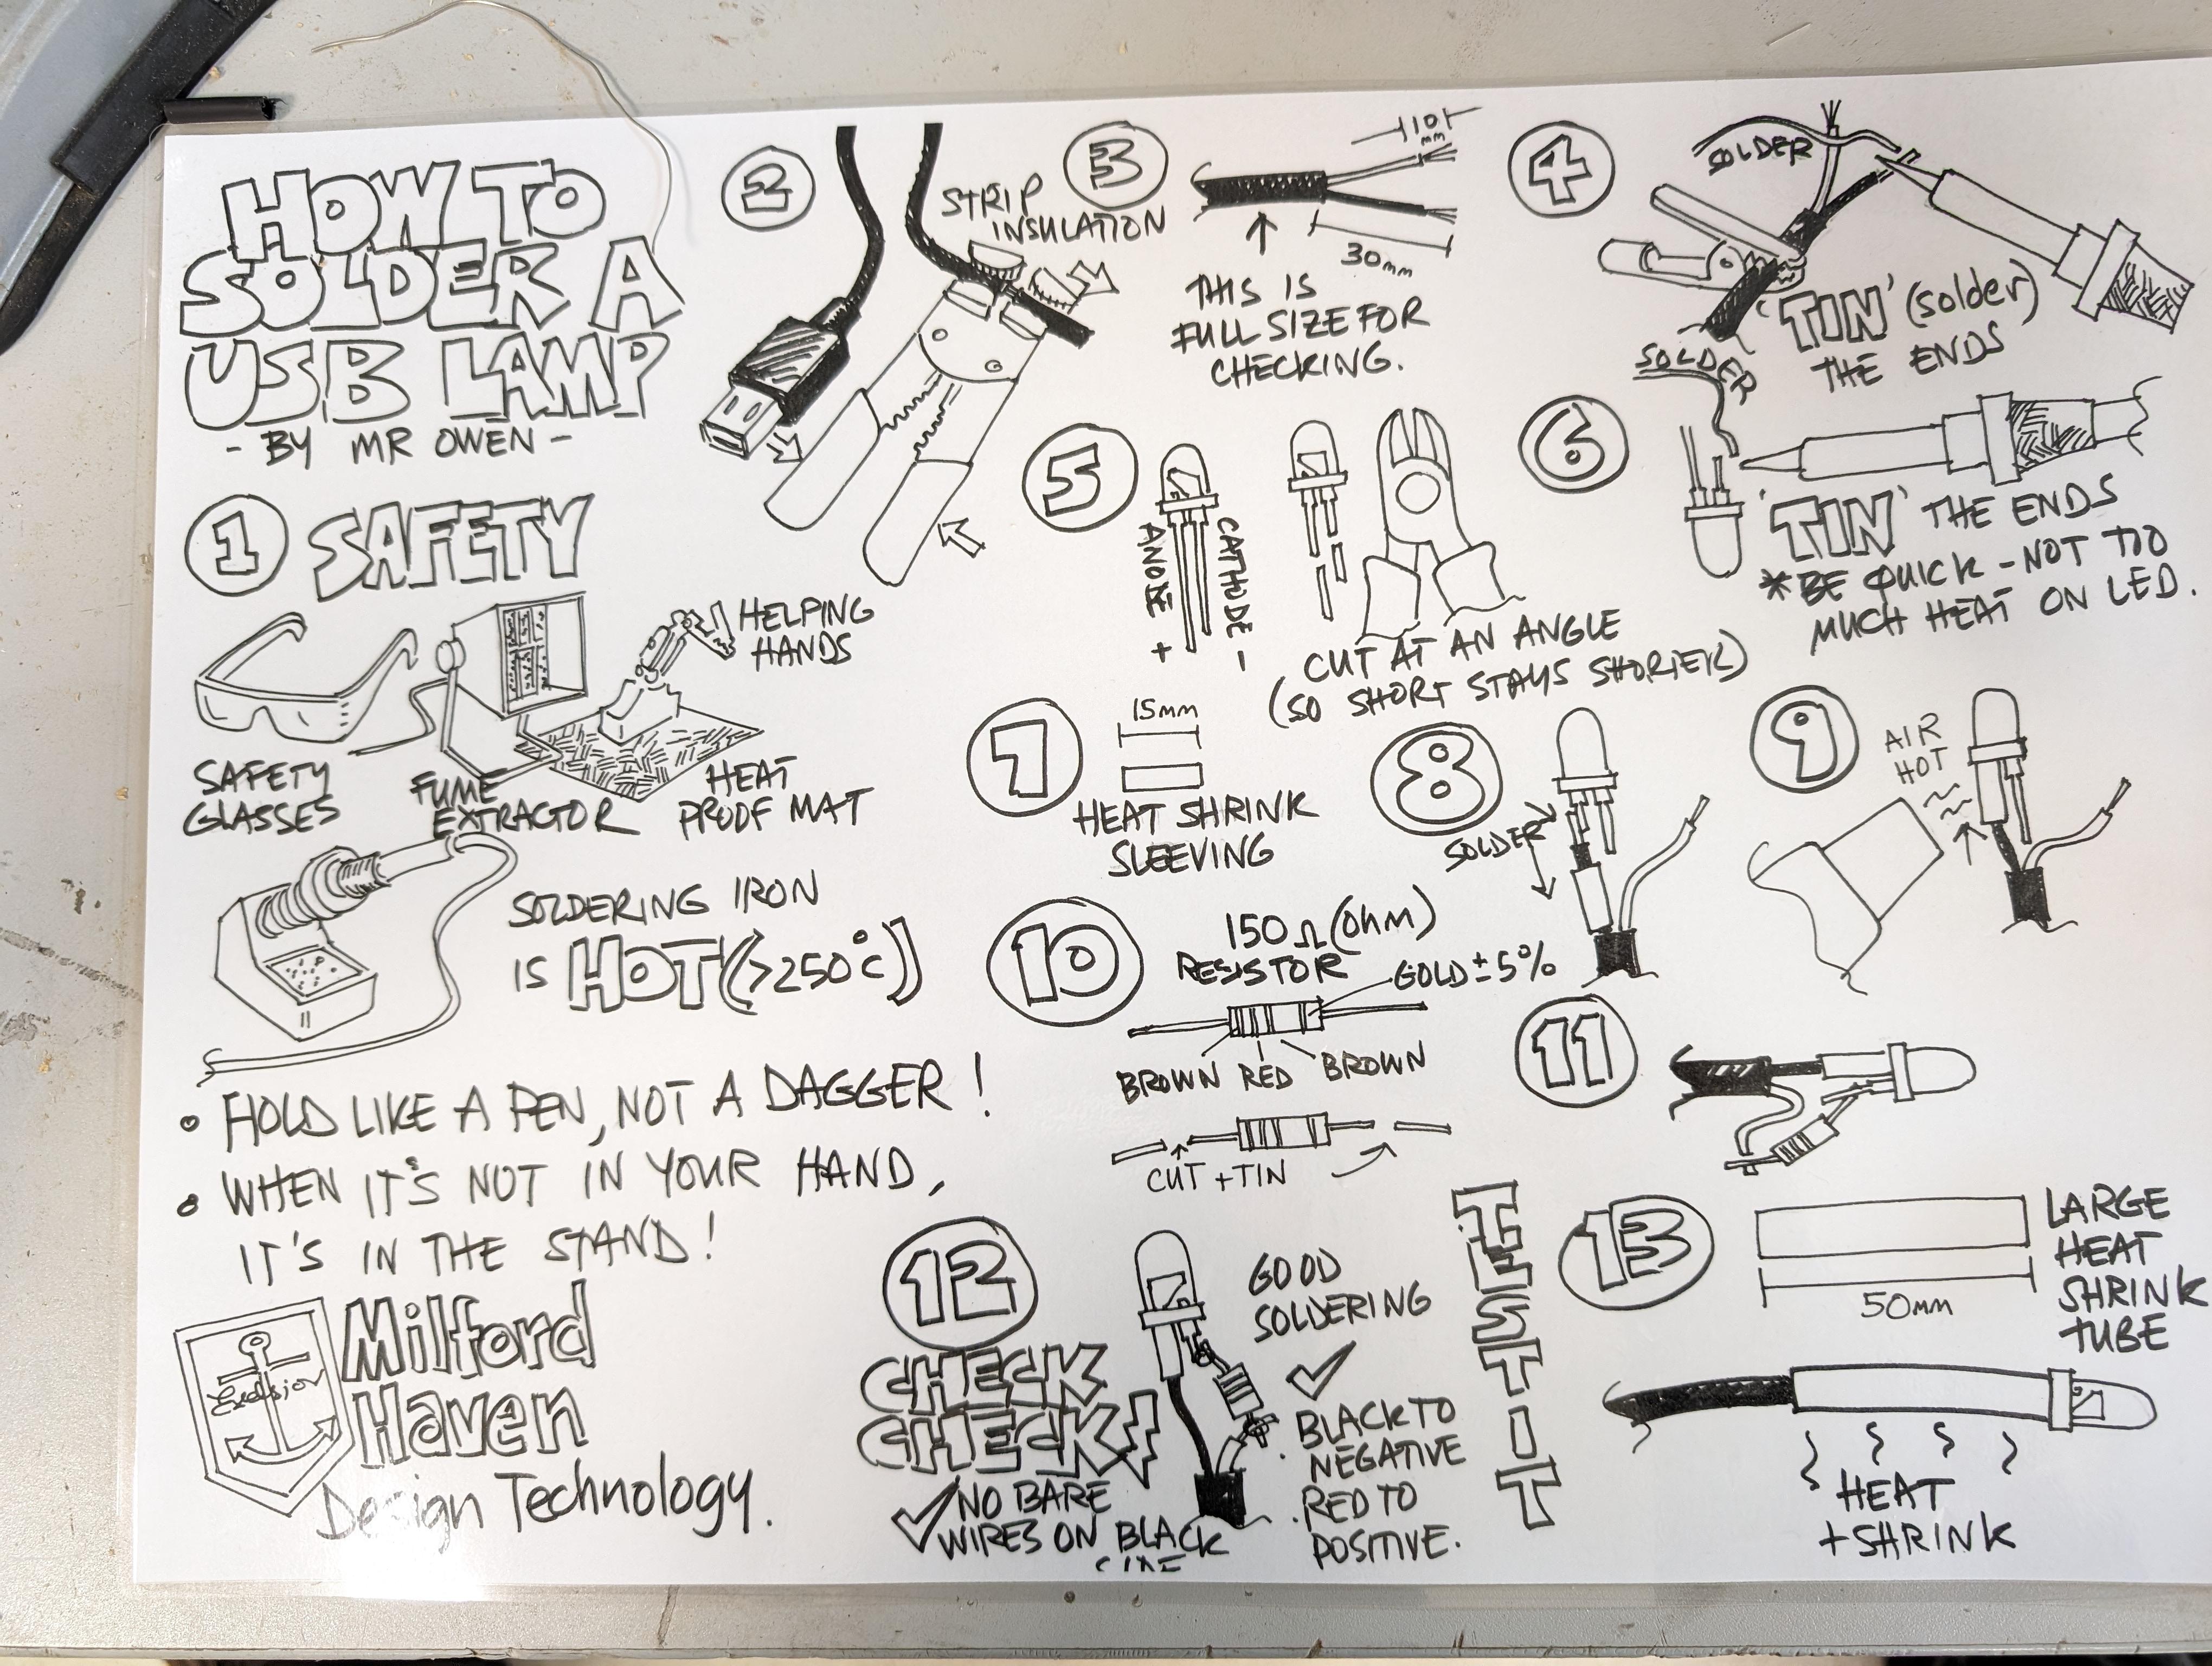 HOW TO
SOLDER A
USB LAMP
- BY MR OWEN -
1 SAFETY
HELPING
HANDS
SAFETY
GLASSES
FUME
EXTRACTOR
HEAT
PROOF MAT
SOLDERING IRON
IS HOT (>250°C)
• HOLD LIKE A PEN, NOT A DAGGER!
• WHEN IT'S NOT IN YOUR HAND,
IT'S IN THE STAND!
Excelsior
Milford
Haven
Design Technology.
2
STRIP
INSULATION
3
10
mm
30mm
THIS IS
FULL SIZE FOR
CHECKING.
4
SOLDER
'TIN' (solder)
THE ENDS
5
ANODE +
CATHODE -
CUT AT AN ANGLE
(SO SHORT STAYS SHORTER)
6
SOLDER
'TIN' THE ENDS
*BE QUICK - NOT TOO
MUCH HEAT ON LED.
7
15mm
HEAT SHRINK
SLEEVING
8
SOLDER
9
AIR
HOT
10
150Ω (Ohm)
RESISTOR
GOLD ±5%
BROWN RED BROWN
CUT + TIN
11
12
CHECK
CHECK!
✓ NO BARE
WIRES ON BLACK
SIDE
GOOD
SOLDERING
✓
. BLACK TO
NEGATIVE
. RED TO
POSITIVE.
TEST IT
13
50mm
LARGE
HEAT
SHRINK
TUBE
HEAT
+ SHRINK